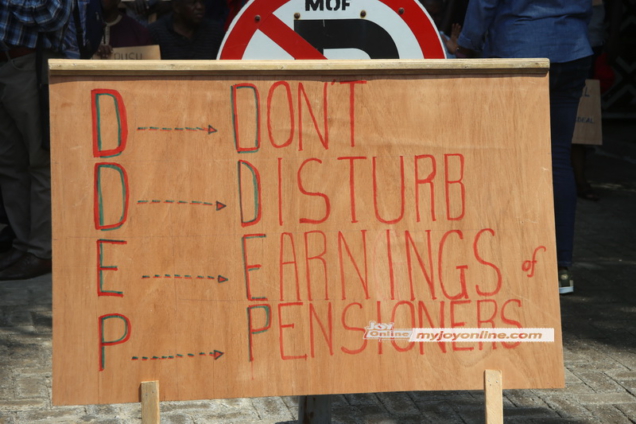 MOF
P
D DON'T
D DISTURB
E EARNINGS of
P PENSIONERS
Joy Online myjoyonline.com